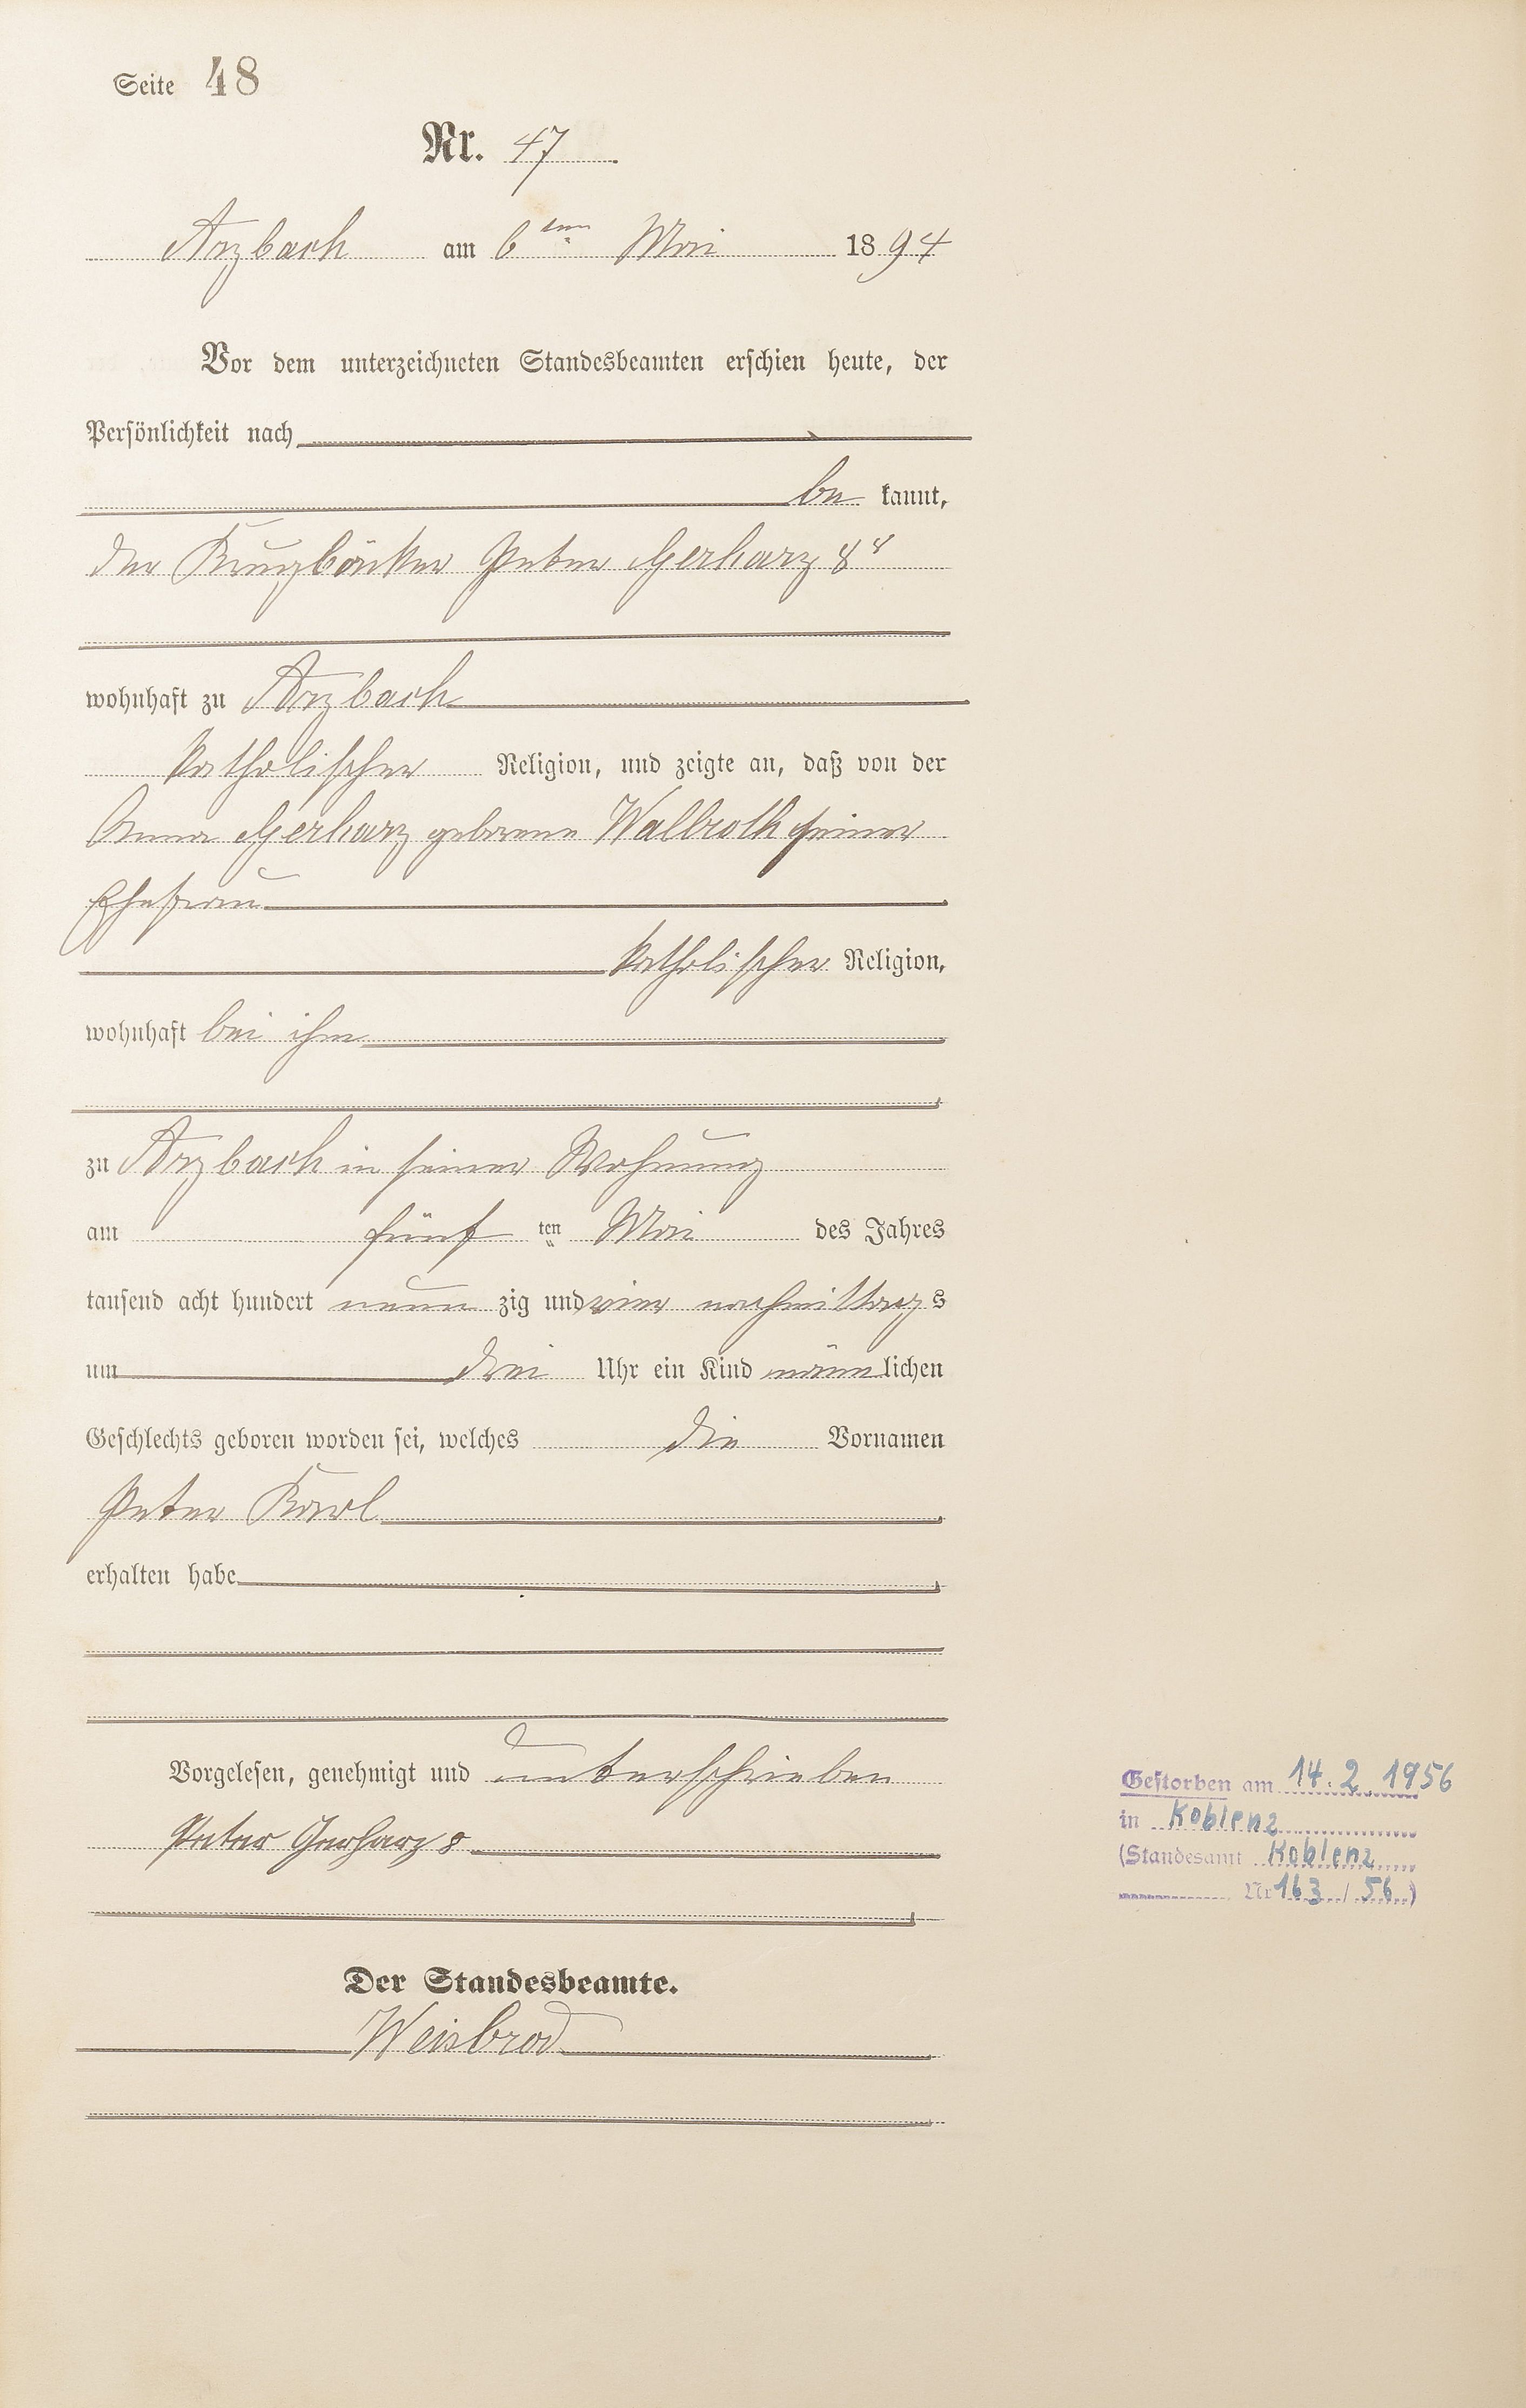 Seite 48
Nr. 47
Arzbach am 6ten Mai 1894
Vor dem unterzeichneten Standesbeamten erschien heute, der
Persönlichkeit nach
be kannt,
der Krugbäcker Peter Gerharz 8
wohnhaft zu Arzbach
katholischer Religion, und zeigte an, daß von der
Anna Gerharz geborene Wallroth seiner
Ehefrau
katholischer Religion,
wohnhaft bei ihm
zu Arzbach in seiner Wohnung
am fünf ten Mai des Jahres
tausend acht hundert neun zig und vier nachmittags
um drei Uhr ein Kind männlichen
Geschlechts geboren worden sei, welches die Vornamen
Peter Karl
erhalten habe
Vorgelesen, genehmigt und unterschrieben
Peter Gerharz 8
Der Standesbeamte.
Weisbrod
Gestorben am 14.2.1956
in Koblenz
(Standesamt Koblenz
Nr 163 / 56)